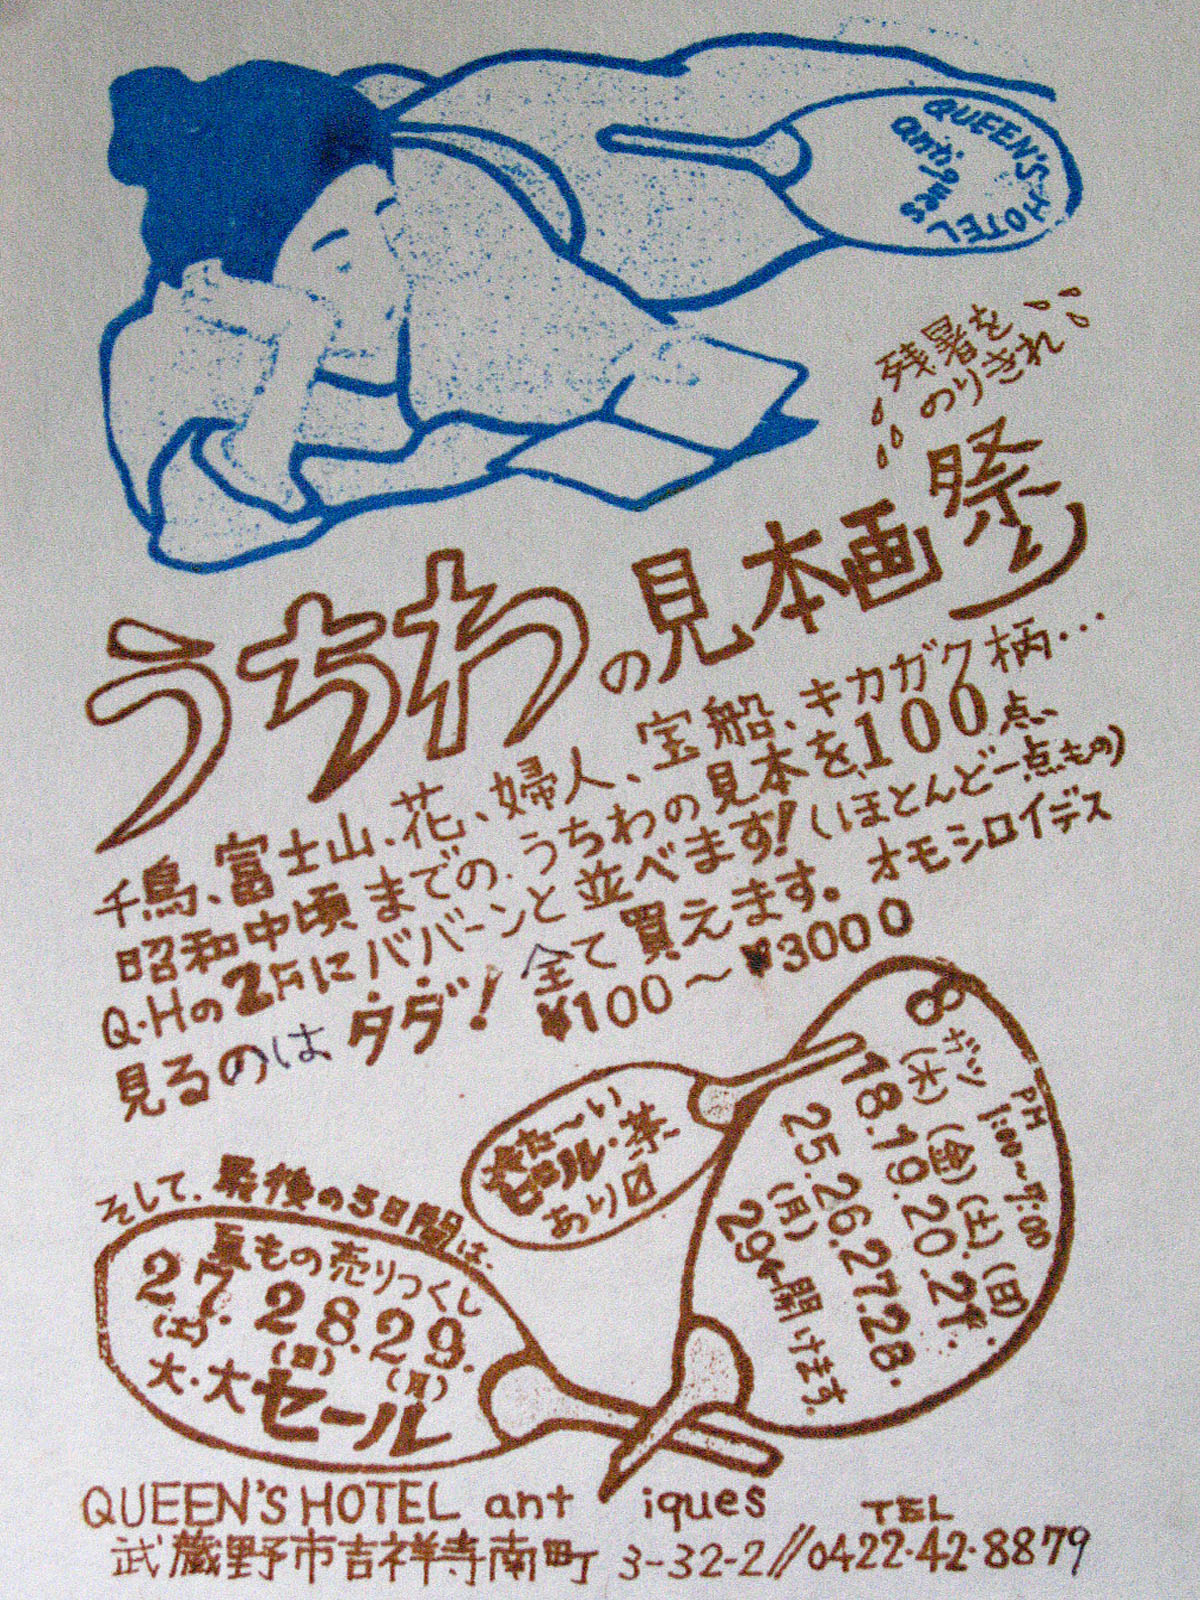 QUEEN'S HOTEL
antiques
残暑を
のりきれ
うちわの見本画祭り
千鳥、富士山、花、婦人、宝船、キカガク柄…
昭和中頃までの、うちわの見本を、100点
Q・Hの2Fにババーンと並べます!(ほとんど一点もの)
見るのはタダ! 全て買えます。オモシロイデス
¥100〜¥3000
8ガツ PM 1:00〜7:00
(木)(金)(土)(日)
18.19.20.21.
25.26.27.28.
(月)
29←開けます。
冷た〜い
ビール・茶
あり〼
そして、最後の3日間は、
夏もの売りつくし
27. 28. 29.
(土) (日) (月)
大・大セール
QUEEN'S HOTEL antiques TEL
武蔵野市吉祥寺南町 3-32-2//0422・42・8879